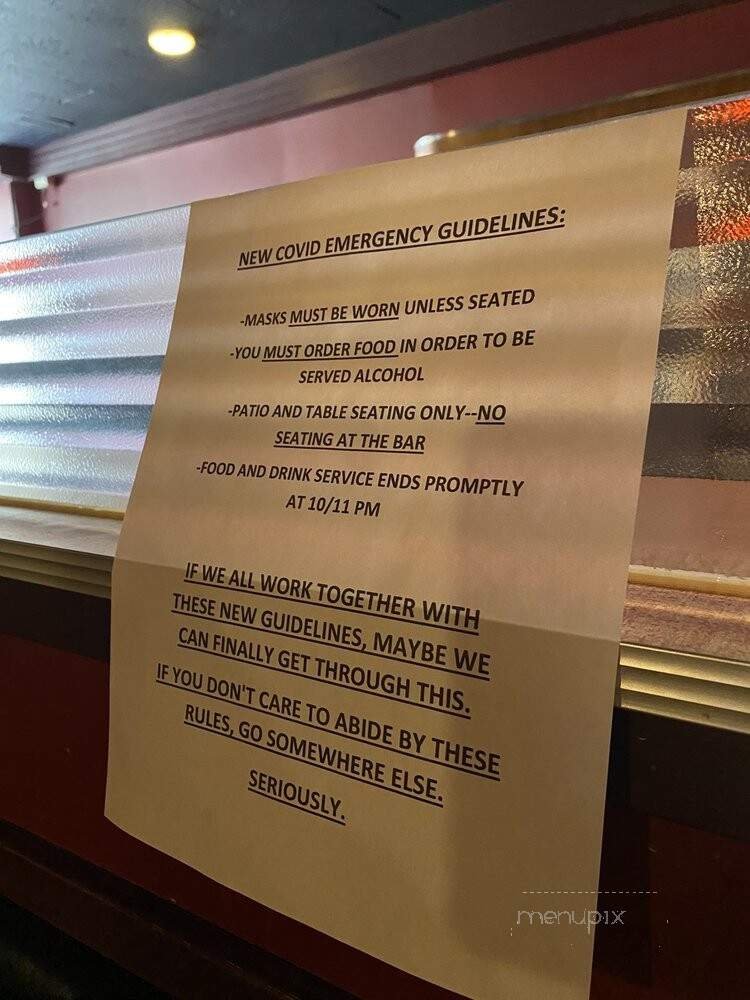 NEW COVID EMERGENCY GUIDELINES:
-MASKS MUST BE WORN UNLESS SEATED
-YOU MUST ORDER FOOD IN ORDER TO BE
SERVED ALCOHOL
-PATIO AND TABLE SEATING ONLY--NO
SEATING AT THE BAR
-FOOD AND DRINK SERVICE ENDS PROMPTLY
AT 10/11 PM
IF WE ALL WORK TOGETHER WITH
THESE NEW GUIDELINES, MAYBE WE
CAN FINALLY GET THROUGH THIS.
IF YOU DON'T CARE TO ABIDE BY THESE
RULES, GO SOMEWHERE ELSE.
SERIOUSLY.
menupix